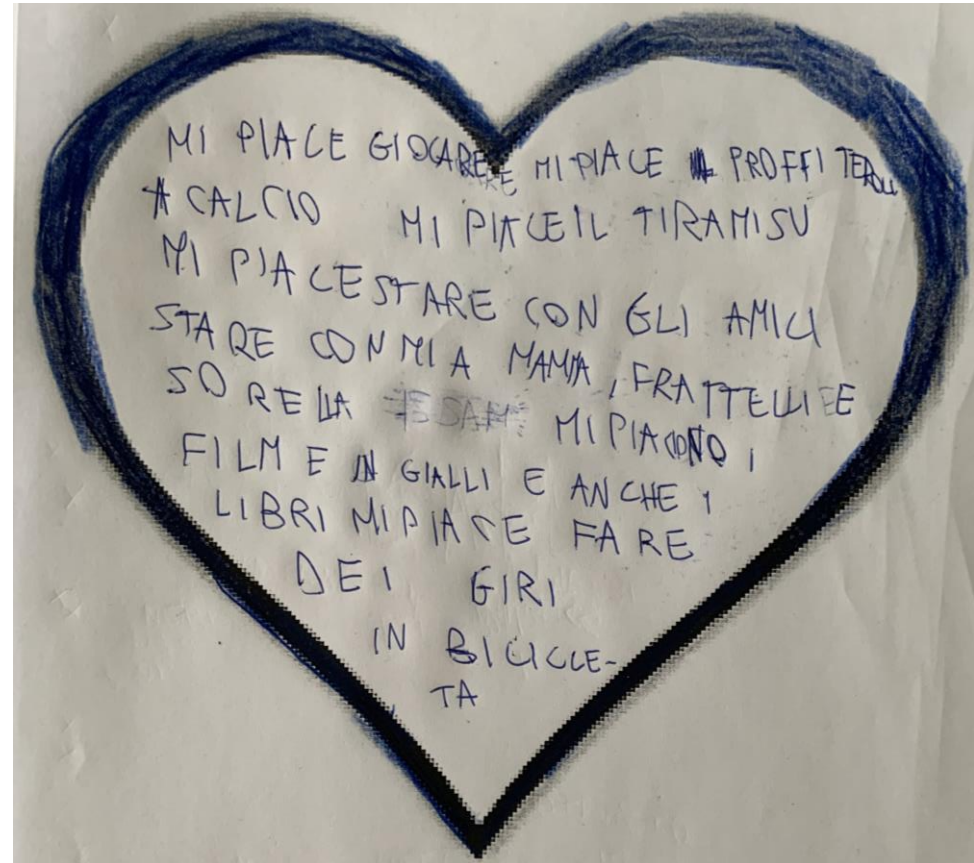 MI PIACE GIOCARE MI PIACE PROFFITEROLI
A CALCIO MI PIACE IL TIRAMISU
MI PIACE STARE CON GLI AMICI
STARE CON MIA MAMMA, FRATTELLI E
SORELLA MI PIACIONO I
FILM E GIALLI E ANCHE I
LIBRI MI PIACE FARE
DEI GIRI
IN BICICLE-
TA